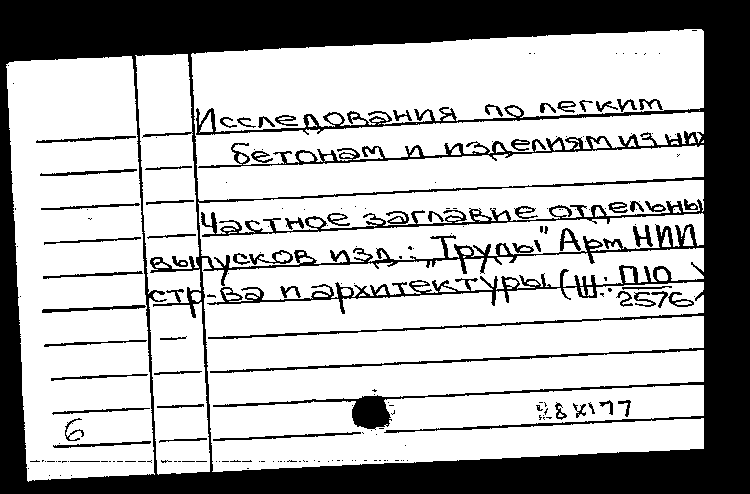 Исследования по легким
бетонам и изделиям из них
Частное заглавие отдельны
выпусков изд.: „Труды" Арм. НИИ
стр-ва и архитектуры. (Ш: П10
2576)
6
28 XI 77